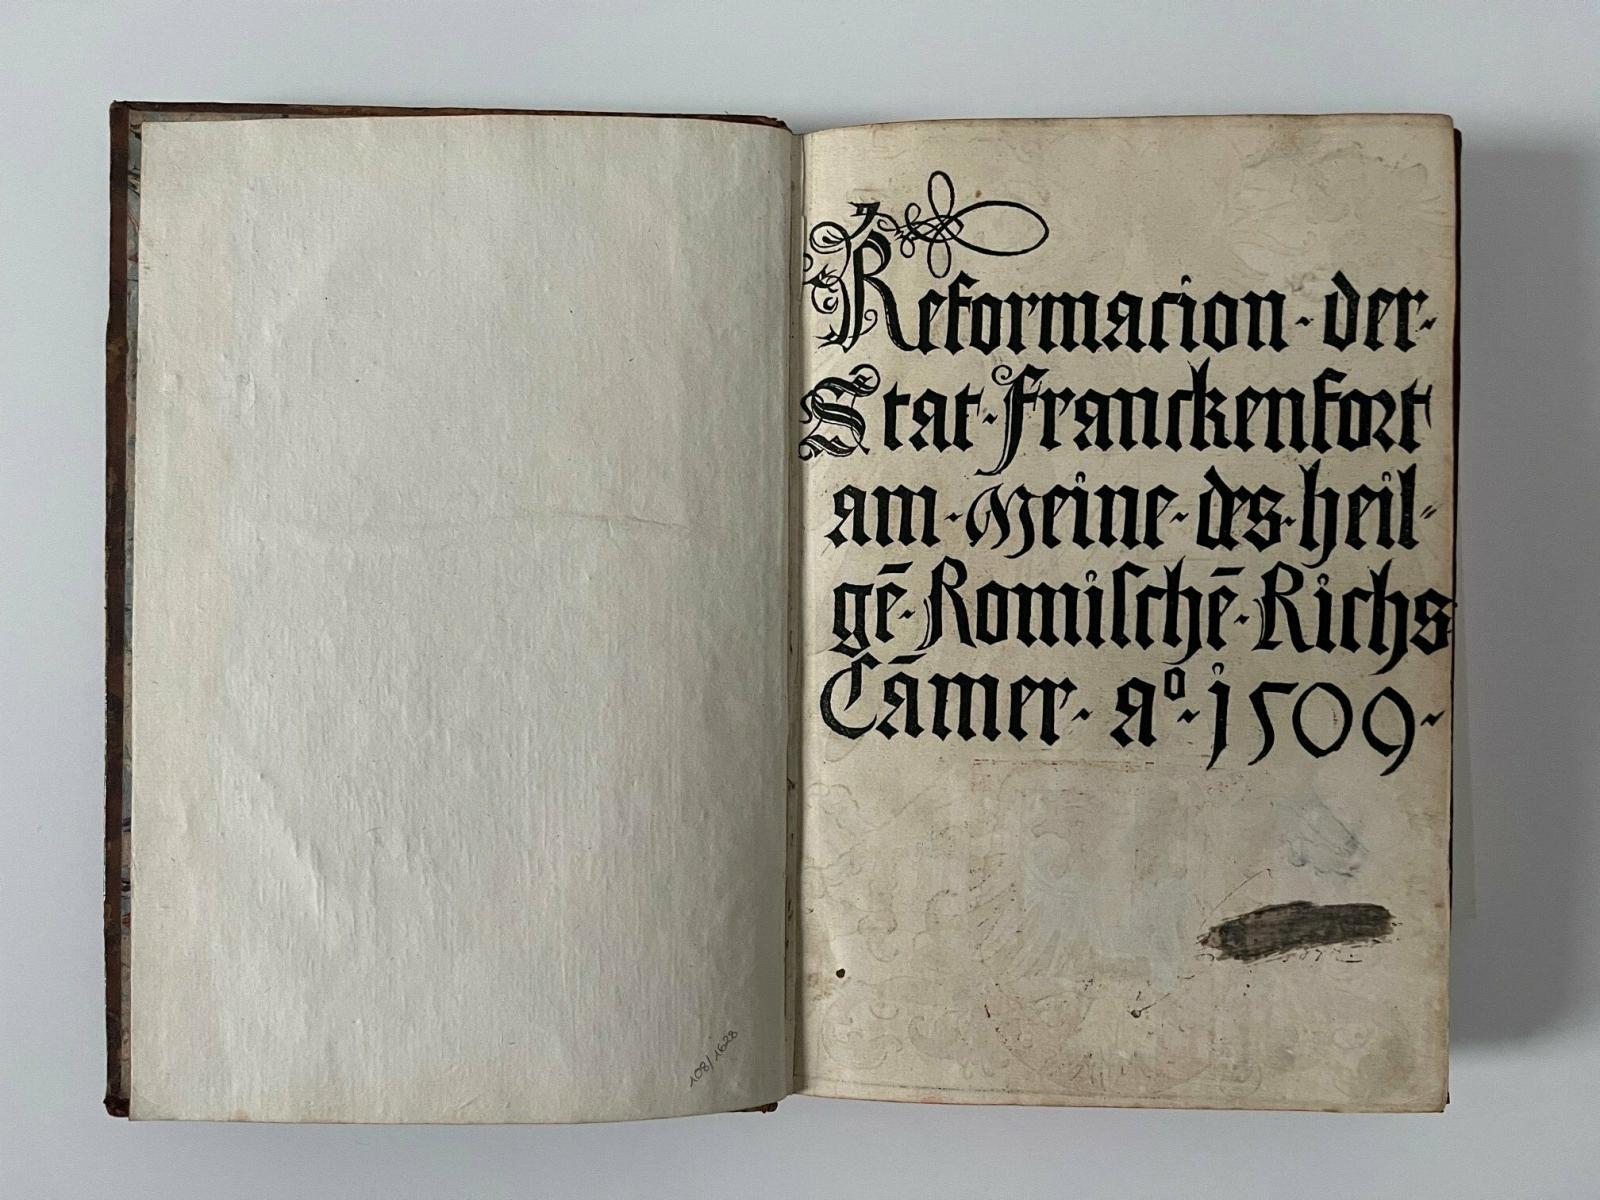 108/1628
Reformacion · der ·
Stat · Franckenfort
am · Meine · des · heil⸗
gē · Romiſchē · Richs
Cāmer · Aº · 1509 ·